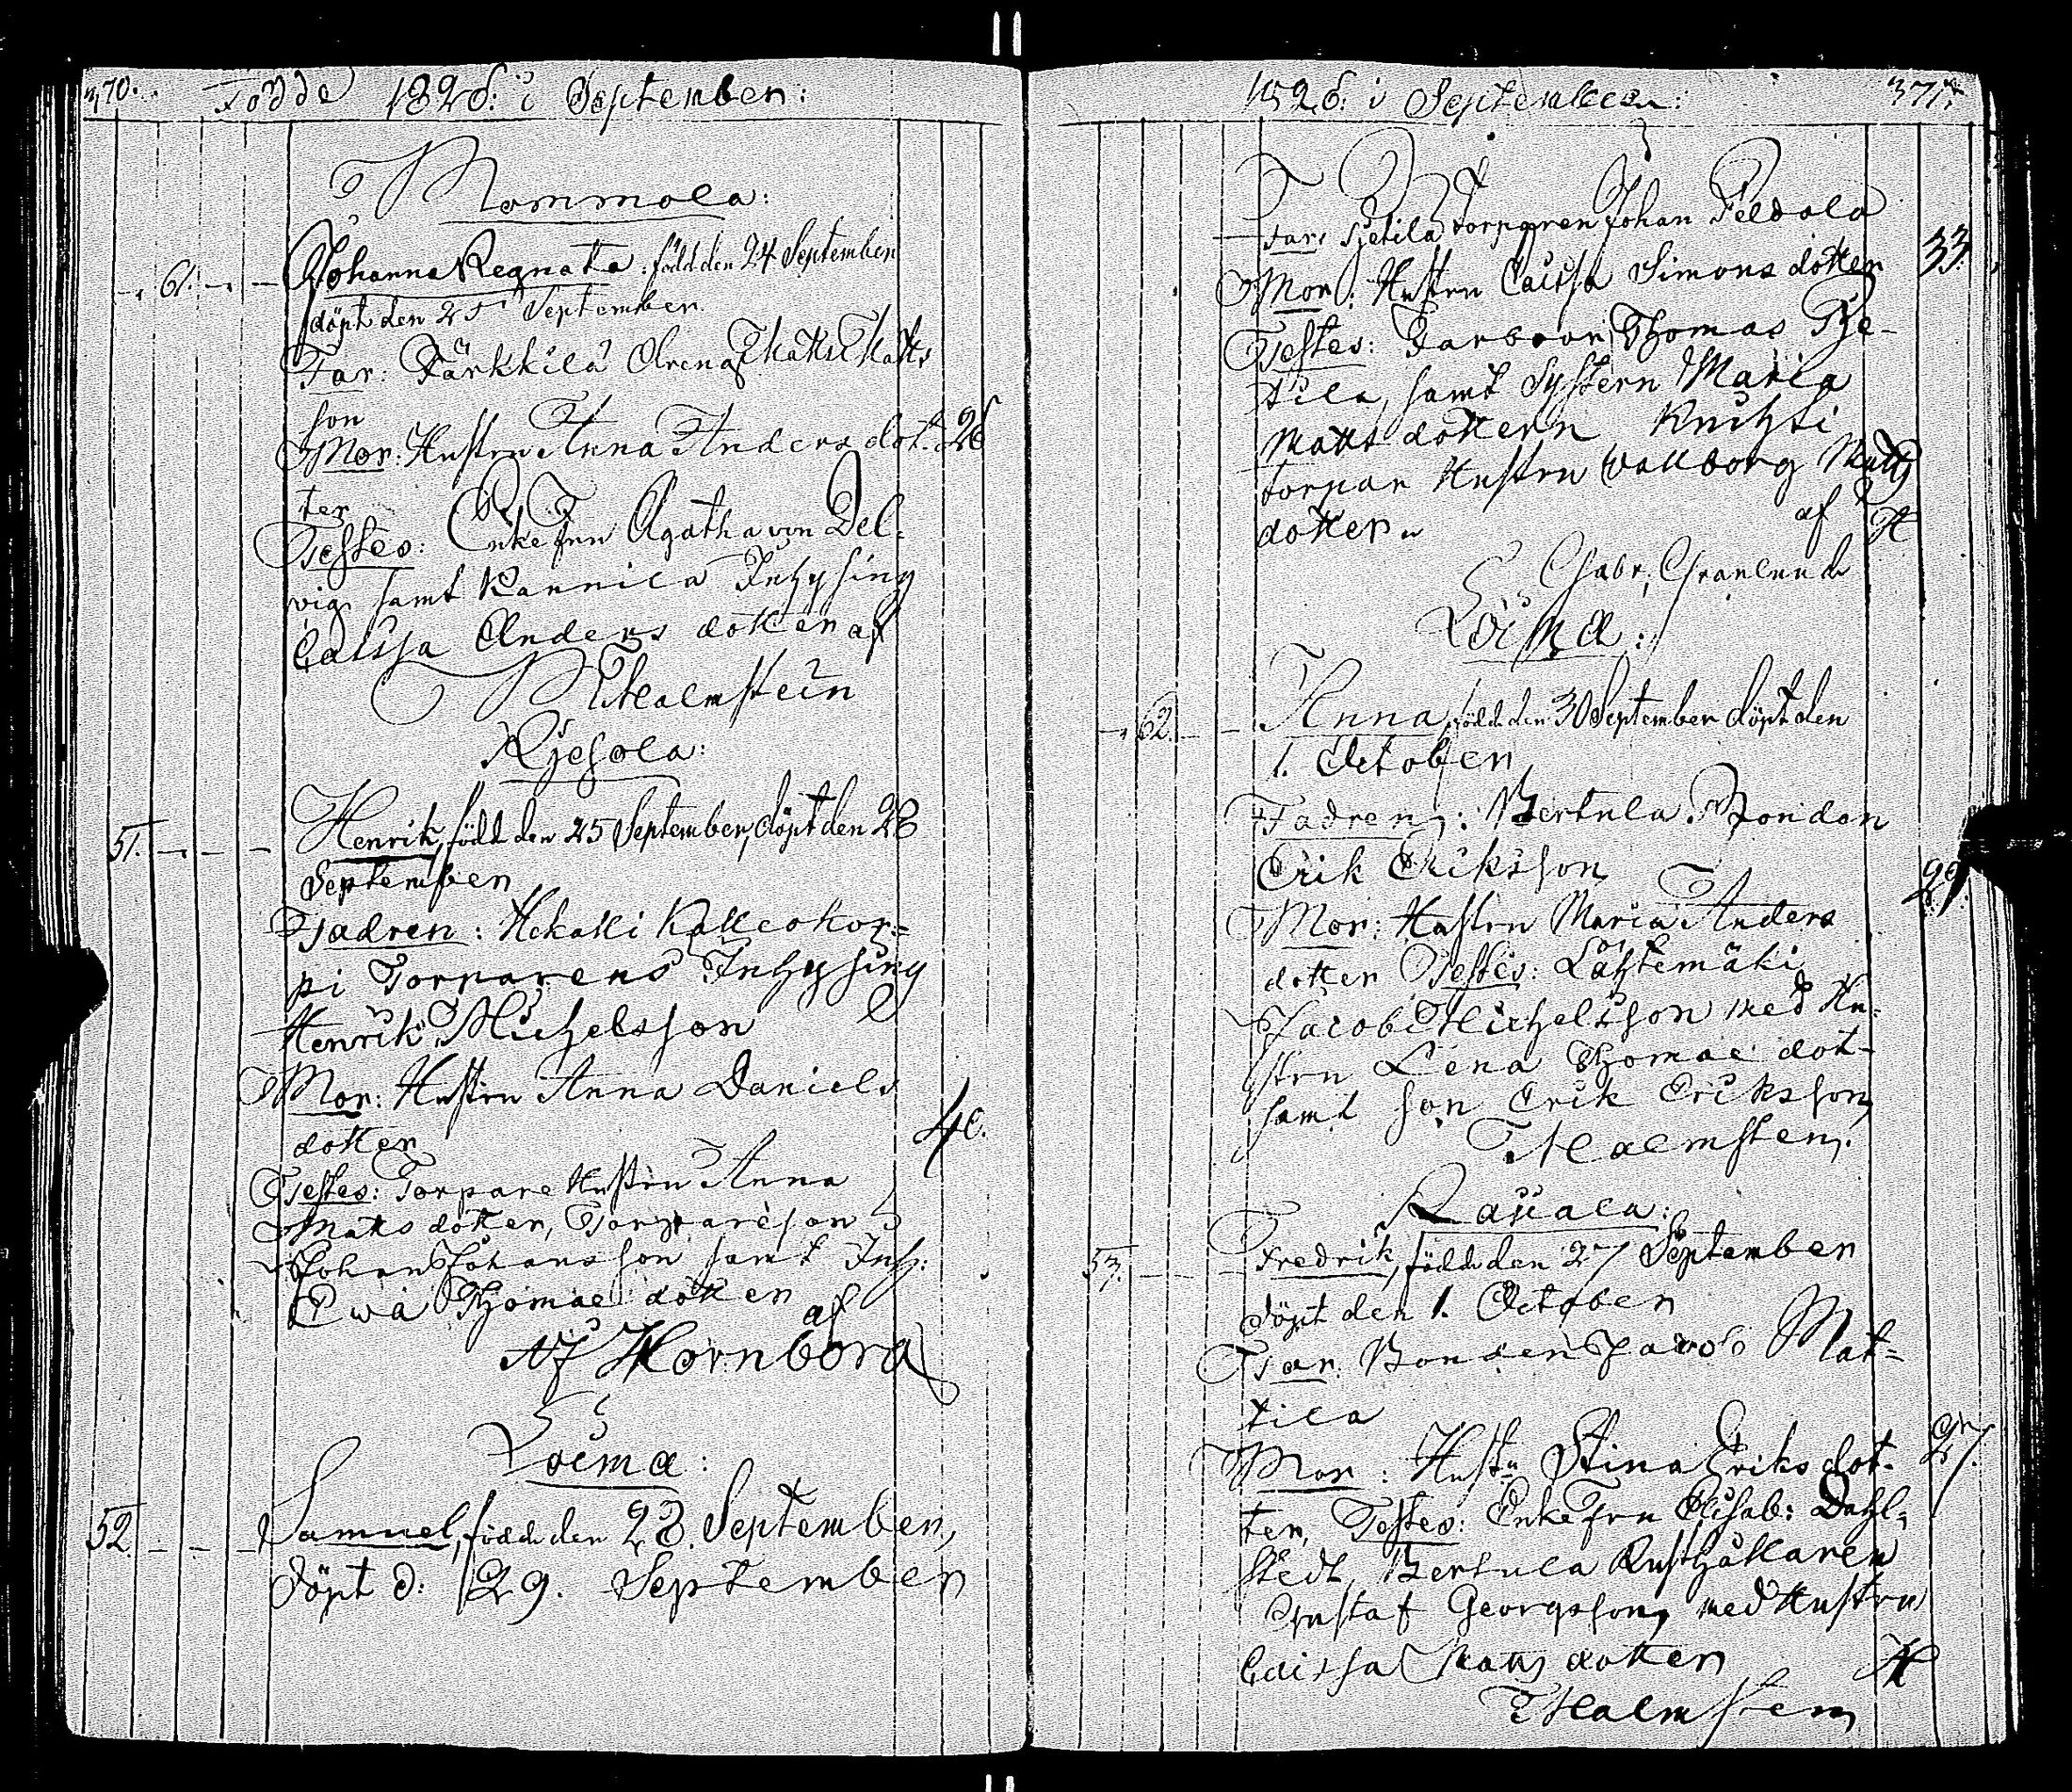 370.
Födde 1826. i September:
Mommola:
61. Johanna Regnata: född den 24 September
döpt den 25 September.
Far: Färkkilä Dreng Matts Matts
son
Mor: Hustru Anna Anders dot= 26
ter
Testes: Enkefru Agatha von Del=
vig samt Kannila Inhysing
Caissa Anders dotter af
Malmsten
Kjesola:
51. Henrik, född den 25 September, döpt den 28
September
Fadren: Hekalli Kalleokor=
pi Torparens Inhysing
Henrik Michelsson
Mor: Hustru Anna Daniels
dotter 40.
Testes: Torpare Hustru Anna
Matts dotter, Torpareson
Johan Johansson samt Inh:
Ewa Thomae dotter
af
Hornborg
Loima:
52. Samuel, född den 28. September,
döpt d: 29. September
1826. i September: 371.
Far: torparen Johan Peldola 33.
Mor: Hustru Caissa Simons dotter
Testes: Farbror Thomas
tila, samt Systern Maria
Matts dottern
torpar Hustru Wallborg Matts
dotter. af
Gabr. Granlund
Loima:
62. Anna, född den 30 September döpt den
1. October
Fadren: Bertula Bondan
Erik Eriksson 29.
Mor: Hustru Maria Anders
dotter Testes: Lähtemäki
Jacob Michelsson med Hu=
stru Lena Thomae dot=
samt son Erik Eriksson
Malmsten.
Raucala:
53. Fredrik, född den 27 September
döpt den 1. October
Far: Bonden Jacob Mat=
tila
Mor: Hustru Stina Eriks dot= 27.
ter, Testes: Enkefru Elisab: Dahl=
stedt, Bertula Rusthållaren
Gustaf Georgsson, med Hustru
Caissa Matts dotter
Malmsten